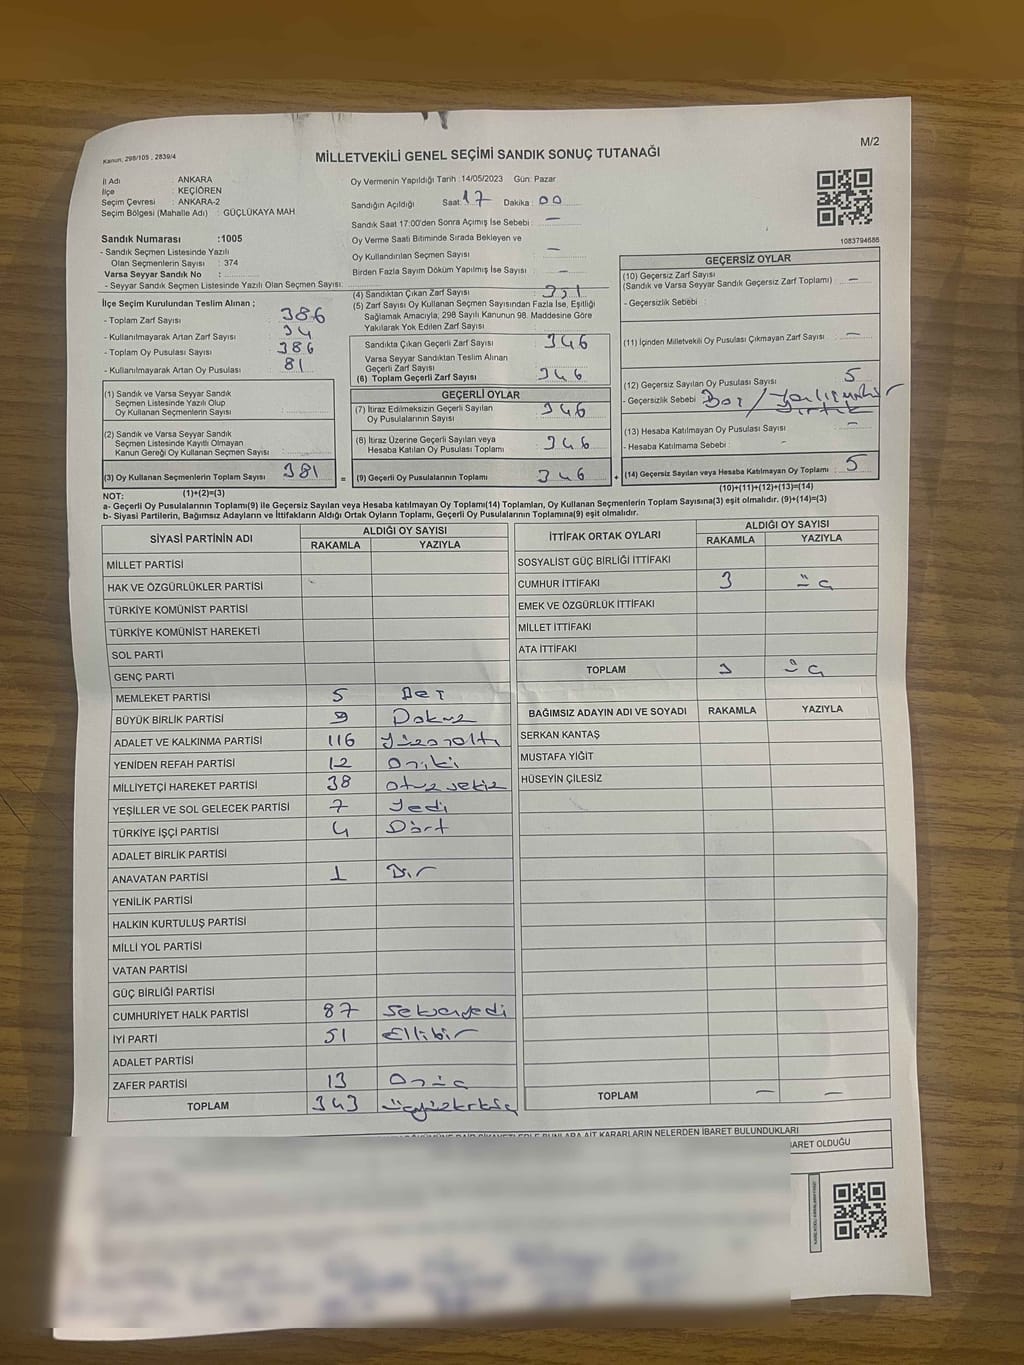 M/2
Kanun, 298/105 , 2839/4
MİLLETVEKİLİ GENEL SEÇİMİ SANDIK SONUÇ TUTANAĞI
İl Adı : ANKARA
İlçe : KEÇİÖREN
Seçim Çevresi : ANKARA-2
Seçim Bölgesi (Mahalle Adı) : GÜÇLÜKAYA MAH
Sandık Numarası :1005
- Sandık Seçmen Listesinde Yazılı
Olan Seçmenlerin Sayısı : 374
Varsa Seyyar Sandık No :
- Seyyar Sandık Seçmen Listesinde Yazılı Olan Seçmen Sayısı:
İlçe Seçim Kurulundan Teslim Alınan ;
- Toplam Zarf Sayısı 386
- Kullanılmayarak Artan Zarf Sayısı 34
- Toplam Oy Pusulası Sayısı 386
- Kullanılmayarak Artan Oy Pusulası 81
(1) Sandık ve Varsa Seyyar Sandık
Seçmen Listesinde Yazılı Olup
Oy Kullanan Seçmenlerin Sayısı :
(2) Sandık ve Varsa Seyyar Sandık
Seçmen Listesinde Kayıtlı Olmayan
Kanun Gereği Oy Kullanan Seçmen Sayısı :
(3) Oy Kullanan Seçmenlerin Toplam Sayısı 381 =
(1)+(2)=(3)
Oy Vermenin Yapıldığı Tarih :14/05/2023 Gün: Pazar
Sandığın Açıldığı Saat: 17 Dakika : 00
Sandık Saat 17:00'den Sonra Açımış İse Sebebi : —
Oy Verme Saati Bitiminde Sırada Bekleyen ve
Oy Kullandırılan Seçmen Sayısı —
Birden Fazla Sayım Döküm Yapılmış İse Sayısı —
(4) Sandıktan Çıkan Zarf Sayısı 351
(5) Zarf Sayısı Oy Kullanan Seçmen Sayısından Fazla İse, Eşitliği
Sağlamak Amacıyla, 298 Sayılı Kanunun 98. Maddesine Göre
Yakılarak Yok Edilen Zarf Sayısı :
Sandıkta Çıkan Geçerli Zarf Sayısı 346
Varsa Seyyar Sandıktan Teslim Alınan
Geçerli Zarf Sayısı
(6) Toplam Geçerli Zarf Sayısı 346
GEÇERLİ OYLAR
(7) İtiraz Edilmeksizin Geçerli Sayılan
Oy Pusulasının Sayısı 346
(8) İtiraz Üzerine Geçerli Sayılan veya
Hesaba Katılan Oy Pusulası Toplamı 346
(9) Geçerli Oy Pusulalarının Toplamı 346 +
1083794686
GEÇERSİZ OYLAR
(10) Geçersiz Zarf Sayısı
(Sandık ve Varsa Seyyar Sandık Geçersiz Zarf Toplamı) : —
- Geçersizlik Sebebi :
(11) İçinden Milletvekili Oy Pusulası Çıkmayan Zarf Sayısı : —
(12) Geçersiz Sayılan Oy Pusulası Sayısı : 5
- Geçersizlik Sebebi : Boş /
Yırtık
(13) Hesaba Katılmayan Oy Pusulası Sayısı : —
- Hesaba Katılmama Sebebi : -
(14) Geçersiz Sayılan veya Hesaba Katılmayan Oy Toplamı : 5
(10)+(11)+(12)+(13)=(14)
NOT:
a- Geçerli Oy Pusulalarının Toplamı(9) ile Geçersiz Sayılan veya Hesaba katılmayan Oy Toplamı(14) Toplamları, Oy Kullanan Seçmenlerin Toplam Sayısına(3) eşit olmalıdır. (9)+(14)=(3)
b- Siyasi Partilerin, Bağımsız Adayların ve İttifakların Aldığı Ortak Oyların Toplamı, Geçerli Oy Pusulalarının Toplamına(9) eşit olmalıdır.
SİYASİ PARTİNİN ADI ALDIĞI OY SAYISI
RAKAMLA YAZIYLA
MİLLET PARTİSİ
HAK VE ÖZGÜRLÜKLER PARTİSİ
TÜRKİYE KOMÜNİST PARTİSİ
TÜRKİYE KOMÜNİST HAREKETİ
SOL PARTİ
GENÇ PARTİ
MEMLEKET PARTİSİ 5 Beş
BÜYÜK BİRLİK PARTİSİ 9 Dokuz
ADALET VE KALKINMA PARTİSİ 116 Yüzonaltı
YENİDEN REFAH PARTİSİ 12 Oniki
MİLLİYETÇİ HAREKET PARTİSİ 38 otuzsekiz
YEŞİLLER VE SOL GELECEK PARTİSİ 7 Yedi
TÜRKİYE İŞÇİ PARTİSİ 4 Dört
ADALET BİRLİK PARTİSİ
ANAVATAN PARTİSİ 1 Bir
YENİLİK PARTİSİ
HALKIN KURTULUŞ PARTİSİ
MİLLİ YOL PARTİSİ
VATAN PARTİSİ
GÜÇ BİRLİĞİ PARTİSİ
CUMHURİYET HALK PARTİSİ 87 Seksenyedi
İYİ PARTİ 51 Ellibir
ADALET PARTİSİ
ZAFER PARTİSİ 13 Onüç
TOPLAM 343 üçyüzkırküç
İTTİFAK ORTAK OYLARI ALDIĞI OY SAYISI
RAKAMLA YAZIYLA
SOSYALİST GÜÇ BİRLİĞİ İTTİFAKI
CUMHUR İTTİFAKI 3 üç
EMEK VE ÖZGÜRLÜK İTTİFAKI
MİLLET İTTİFAKI
ATA İTTİFAKI
TOPLAM 3 üç
BAĞIMSIZ ADAYIN ADI VE SOYADI RAKAMLA YAZIYLA
SERKAN KANTAŞ
MUSTAFA YİĞİT
HÜSEYİN ÇİLESİZ
TOPLAM — —
AİT KARARLARIN NELERDEN İBARET BULUNDUKLARI
OLDUĞU